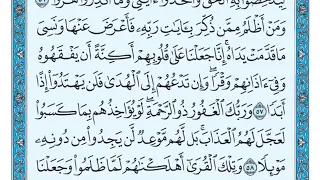 لِيُدْحِضُوا۟ بِهِ ٱلْحَقَّ وَٱتَّخَذُوٓا۟ ءَايَٰتِى وَمَآ أُنذِرُوا۟ هُزُوًا ٥٦
وَمَنْ أَظْلَمُ مِمَّن ذُكِّرَ بِـَٔايَٰتِ رَبِّهِۦ فَأَعْرَضَ عَنْهَا وَنَسِىَ
مَا قَدَّمَتْ يَدَاهُ إِنَّا جَعَلْنَا عَلَىٰ قُلُوبِهِمْ أَكِنَّةً أَن يَفْقَهُوهُ
وَفِىٓ ءَاذَانِهِمْ وَقْرًا وَإِن تَدْعُهُمْ إِلَى ٱلْهُدَىٰ فَلَن يَهْتَدُوٓا۟ إِذًا
أَبَدًا ٥٧ وَرَبُّكَ ٱلْغَفُورُ ذُو ٱلرَّحْمَةِ لَوْ يُؤَاخِذُهُم بِمَا كَسَبُوا۟
لَعَجَّلَ لَهُمُ ٱلْعَذَابَ بَل لَّهُم مَّوْعِدٌ لَّن يَجِدُوا۟ مِن دُونِهِۦ
مَوْئِلًا ٥٨ وَتِلْكَ ٱلْقُرَىٰٓ أَهْلَكْنَٰهُمْ لَمَّا ظَلَمُوا۟ وَجَعَلْنَا